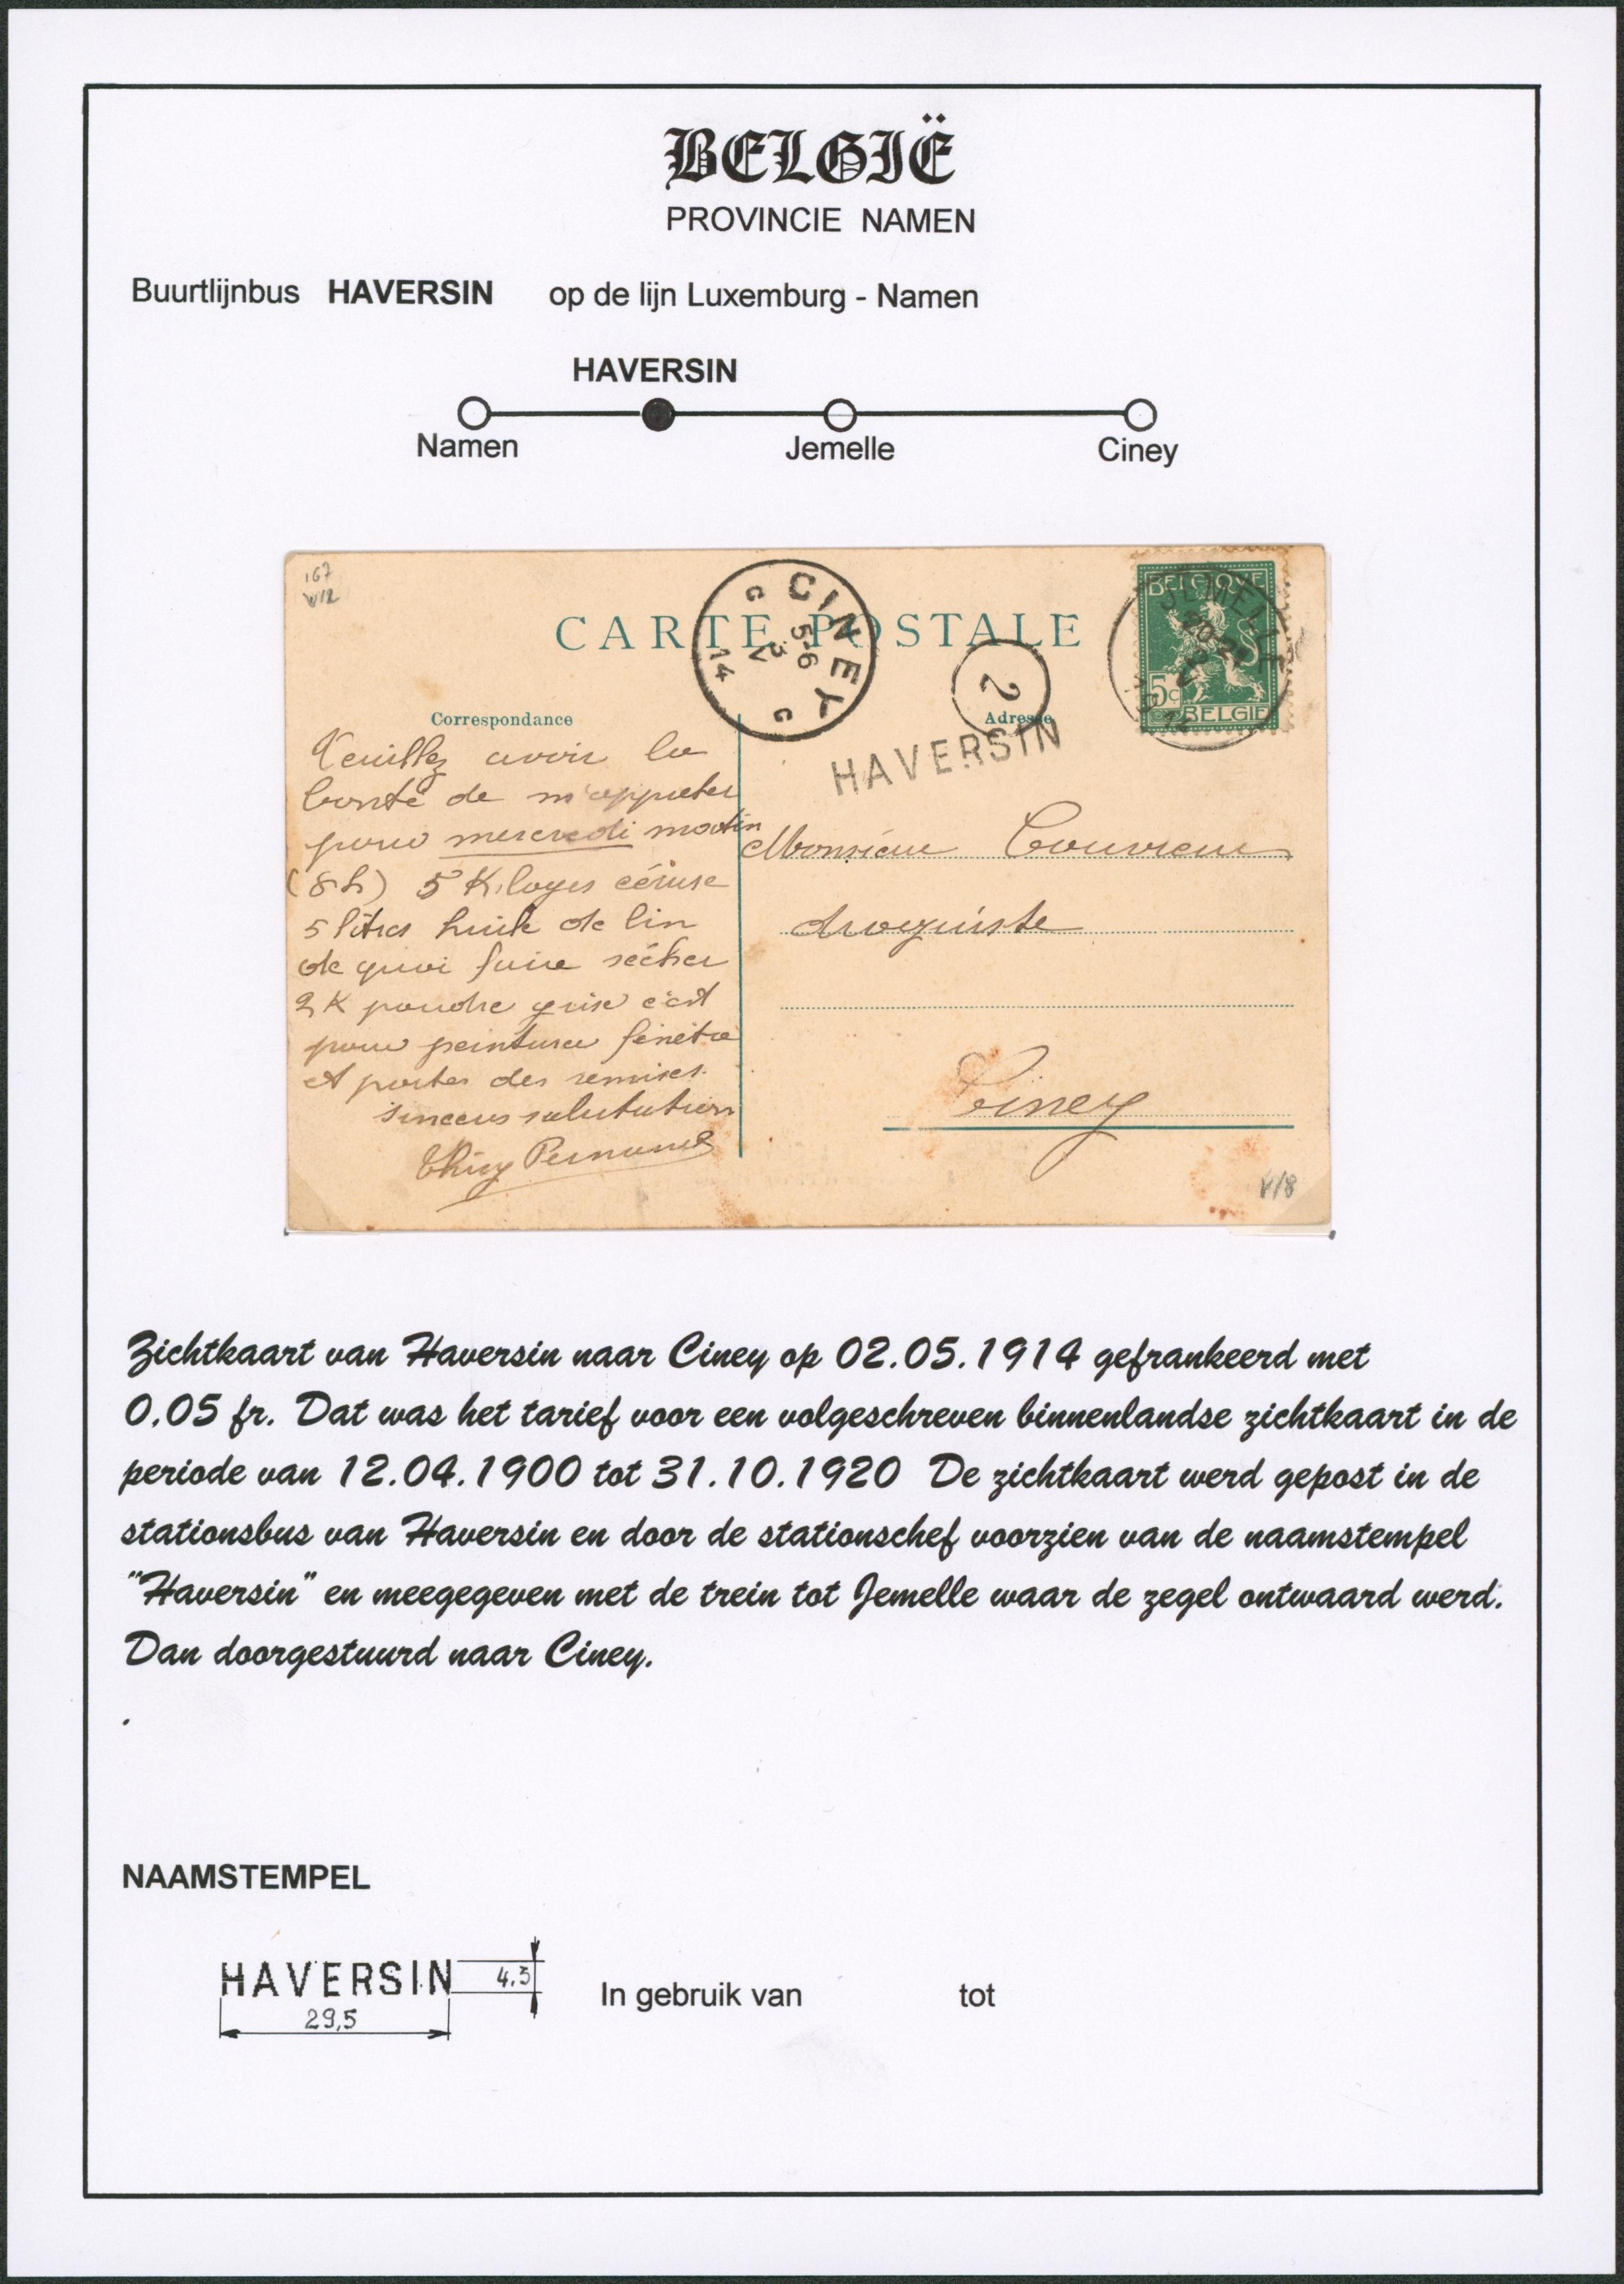 BELGIË
PROVINCIE NAMEN
Buurtlijnbus HAVERSIN op de lijn Luxemburg - Namen
HAVERSIN
Namen Jemelle Ciney
167
V/12
CINEY
5-6
3
V
14
C C
CARTE POSTALE
2
HAVERSIN
BELGIQUE
5c
BELGIE
JEMELLE
Correspondance
Veuillez avoir la
bonté de m'appreter
pour mercredi matin
(8h) 5 Kiloges céruse
5 litres huile de lin
de quoi faire sécher
2 K poudre grise c'est
pour peinturer fenêtre
et portes des remises.
sinceres salutations
Adresse
Monsieur Couvreur
droguiste
Ciney
V/8
Zichtkaart van Haversin naar Ciney op 02.05.1914 gefrankeerd met
0,05 fr. Dat was het tarief voor een volgeschreven binnenlandse zichtkaart in de
periode van 12.04.1900 tot 31.10.1920 De zichtkaart werd gepost in de
stationsbus van Haversin en door de stationschef voorzien van de naamstempel
"Haversin" en meegegeven met de trein tot Jemelle waar de zegel ontwaard werd.
Dan doorgestuurd naar Ciney.
.
NAAMSTEMPEL
HAVERSIN 4,3
29,5
In gebruik van tot